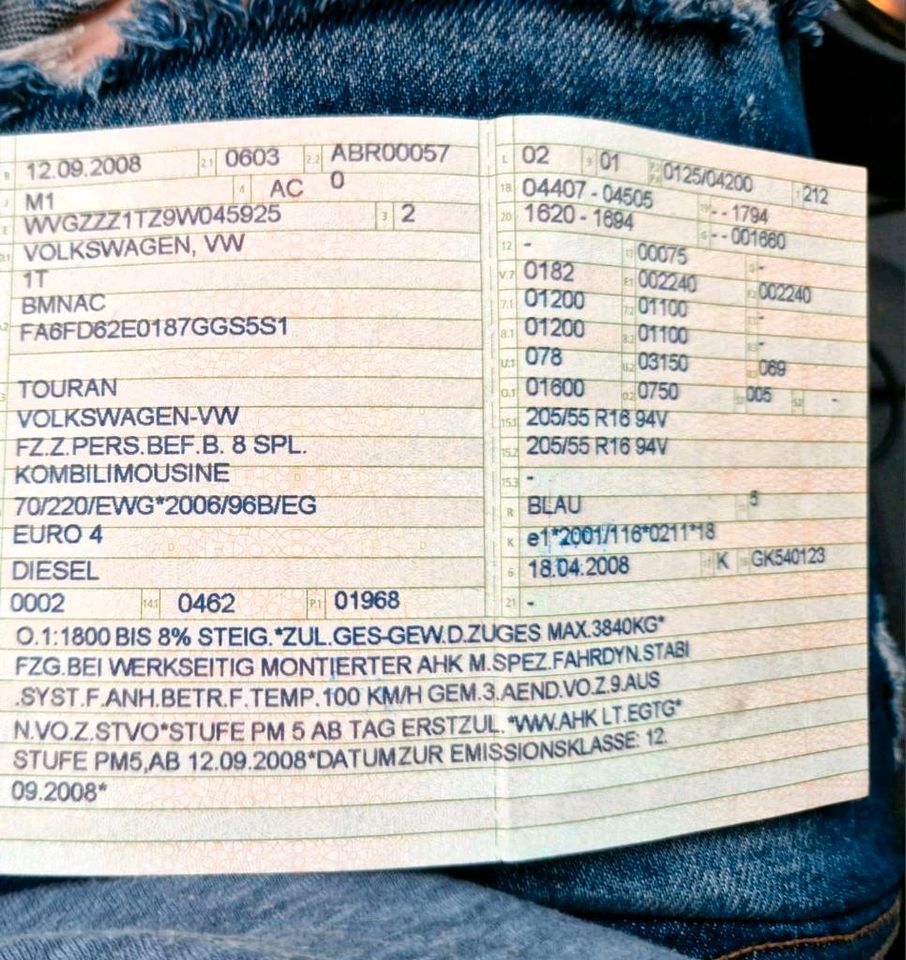 B 12.09.2008 2.1 0603 2.2 ABR00057
J M1 4 AC 0
E WVGZZZ1TZ9W045925 3 2
D.1 VOLKSWAGEN, VW
1T
BMNAC
FA6FD62E0187GGS5S1
TOURAN
VOLKSWAGEN-VW
FZ.Z.PERS.BEF.B. 8 SPL.
KOMBILIMOUSINE
70/220/EWG*2006/96B/EG
EURO 4
DIESEL
0002 14.1 0462 P.1 01968
L 02 9 01 0125/04200 T 212
18 04407 - 04505 - - 1794
20 1620 - 1694 G - - 001660
12 - 13 00075 -
V.7 0182 F.1 002240 F.2 002240
7.1 01200 7.2 01100 -
8.1 01200 8.2 01100 -
U.1 078 U.2 03150 069
O.1 01600 O.2 0750 005 S.2 -
15.1 205/55 R16 94V
15.2 205/55 R16 94V
15.3 -
R BLAU 5
K e1*2001/116*0211*18
6 18.04.2008 17 K GK540123
21 -
O.1:1800 BIS 8% STEIG.*ZUL.GES-GEW.D.ZUGES MAX.3840KG*
FZG.BEI WERKSEITIG MONTIERTER AHK M.SPEZ.FAHRDYN.STABI
.SYST.F.ANH.BETR.F.TEMP.100 KM/H GEM.3.AEND.VO.Z.9.AUS
N.VO.Z.STVO*STUFE PM 5 AB TAG ERSTZUL.*WW.AHK LT.EGTG*
STUFE PM5,AB 12.09.2008*DATUMZUR EMISSIONSKLASSE: 12.
09.2008*